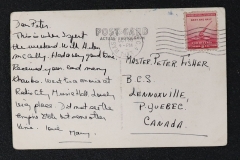 Dear Peter
This is where I spent
the weekend. With Helen
McCathy. Had a very good time.
Received yours. and many
thanks. Went to a movie at
Radio City Music Hall. Lovely
big place. Did not see the
Empire State but some other
time. Love Mamy.
POST CARD
MASTER PETER FISHER
B.C.S.
LENNOXVILLE,
P. QUEBEC.
CANADA.